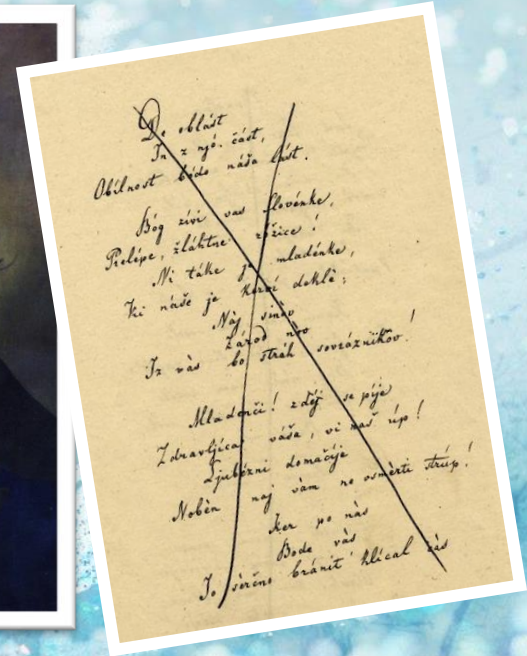 De oblást
In z njó. část,
Obílnost bódo náša lást.
Bóg živi vas Slovénke,
Prelépe, žláhtne róžice!
Ni táke je mladénke,
Ki náše je kerví deklè;
Nàj sinóv
Zárod nòv
Iz vàs bo stràh sovrážnikov!
Mladenči! zdéj se píje
Zdravljíca váša, vi naš úp!
Ljubézni domačíje
Nobèn naj vàm ne vsmèrti strúp!
Ker po nàs
Bode vàs
Jo sèrčno brániť klícal čàs